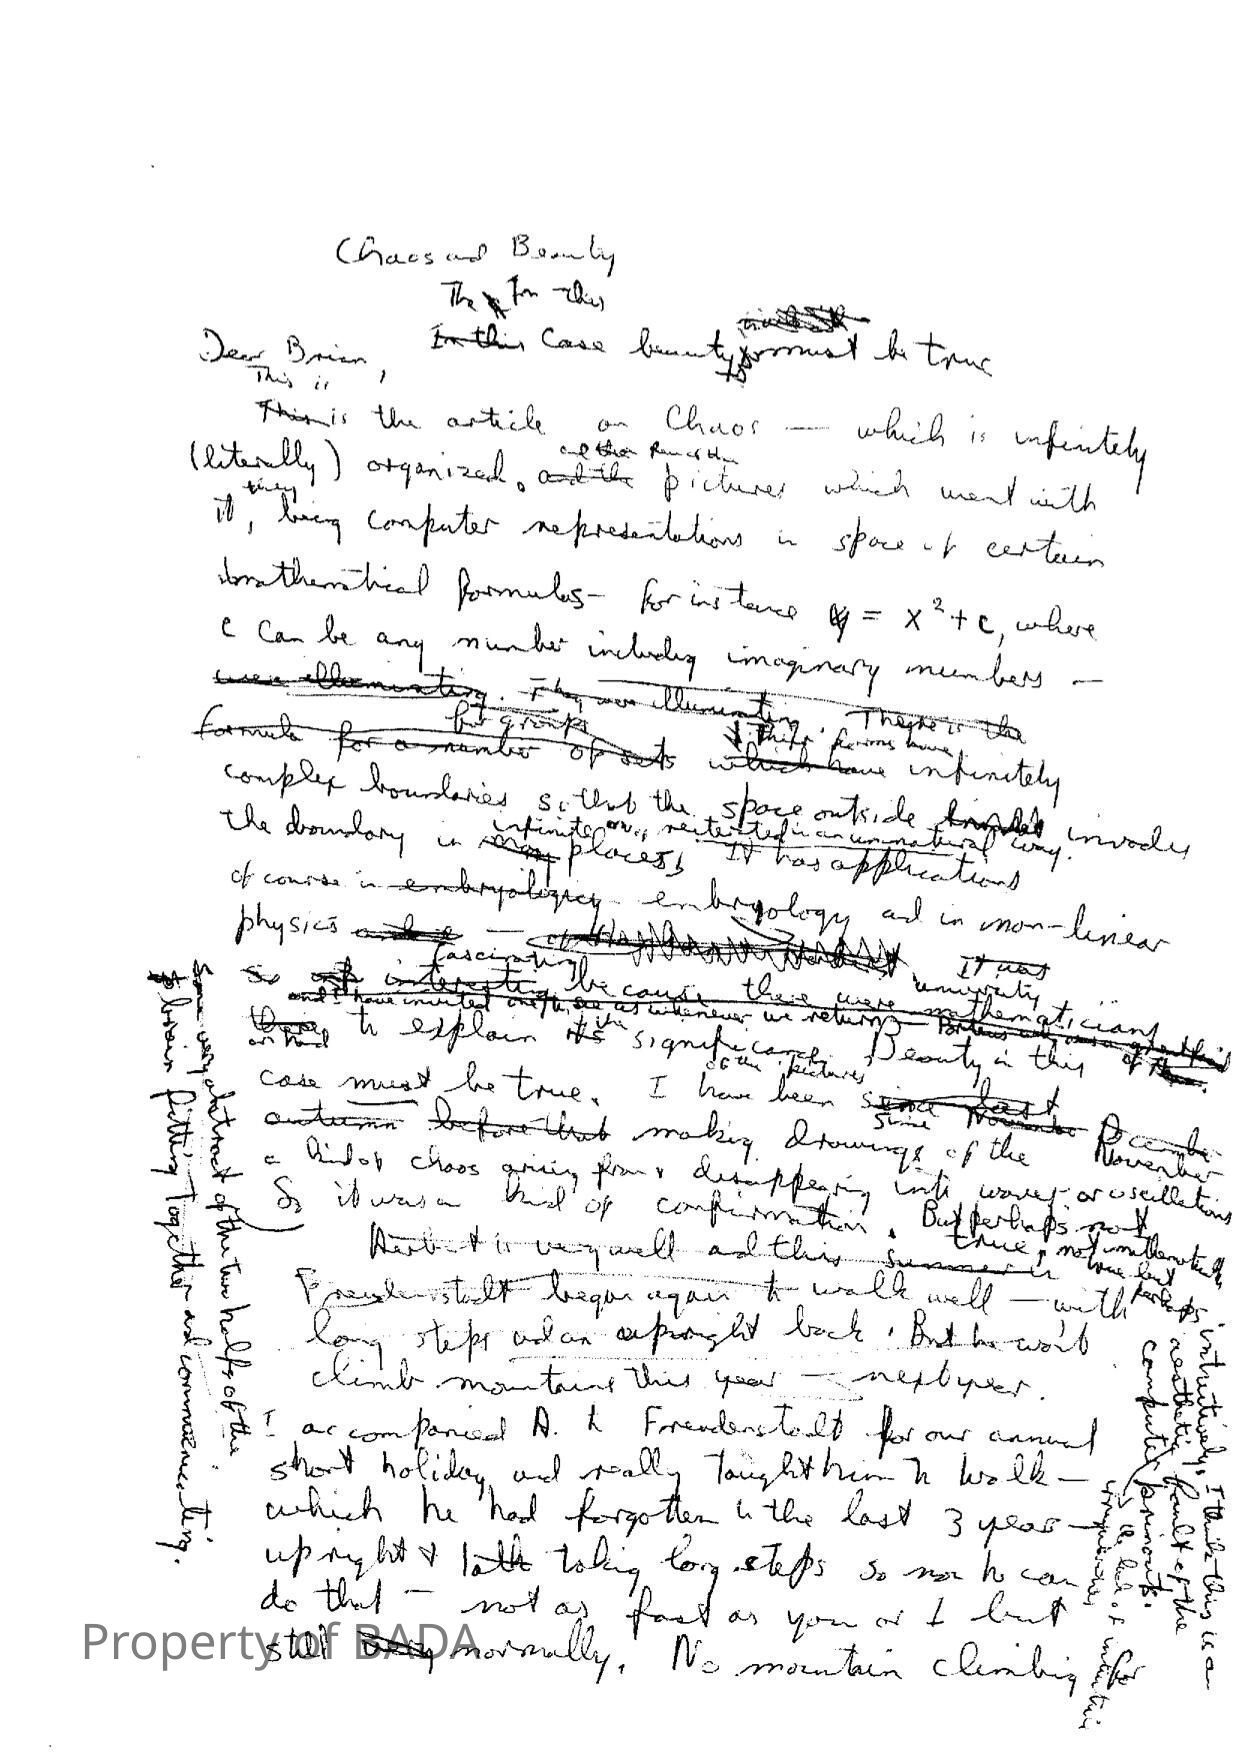 Chaos and Beauty
The for this
In this case beauty must be true
Dear Brian,
This is
This is the article on Chaos — which is infinitely
(literally) organized, and the pictures which went with
they
it, being computer representations in space of certain
mathematical formulas - for instance y = x² + c, where
c can be any number including imaginary numbers —
were illuminating. They were illuminating. There is the
for groups
formula for a number of sets which have infinitely
These forms have
complex boundaries so that the space outside invades
the boundary in many places, It has applications
infinite ones, reiterated in an unnatural way.
of course in embryology embryology and in non-linear
physics —
It was
fascinating
so interesting because there were mathematicians
university
and I have invited one to see us whenever we return —
there to explain its the significance. Beauty in this
on hand
of the pictures
case must be true. I have been since last
autumn before that making drawings of the
since November December
November
a kind of chaos arising from & disappearing into waves or oscillations
So it was a kind of confirmation. But perhaps not
true, not mathematically
true but
perhaps
intuitively. I think this is a
aesthetic fault of the
computer printouts.
Herbert is very well and this summer in
Freudenstadt began again to walk well — with
long steps and an upright back. But he won't
climb mountains this year — next year.
I accompanied A. to Freudenstadt for our annual
short holiday and really taught him to walk —
which he had forgotten in the last 3 years —
upright & taking long steps so now he can
do that — not as fast as you or I but
still very normally. No mountain climbing for
some very abstract of the two halfs of the
brain fitting together and communicating.
Property of BADA